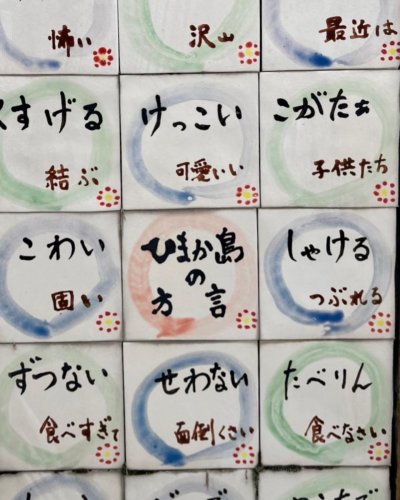 怖い
沢山
最近は
すげる
結ぶ
けっこい
可愛いい
こがたぁ
子供たち
こわい
固い
ひまか島
の
方言
しゃける
つぶれる
ずつない
食べすぎて
せわない
面倒くさい
たべりん
食べなさい